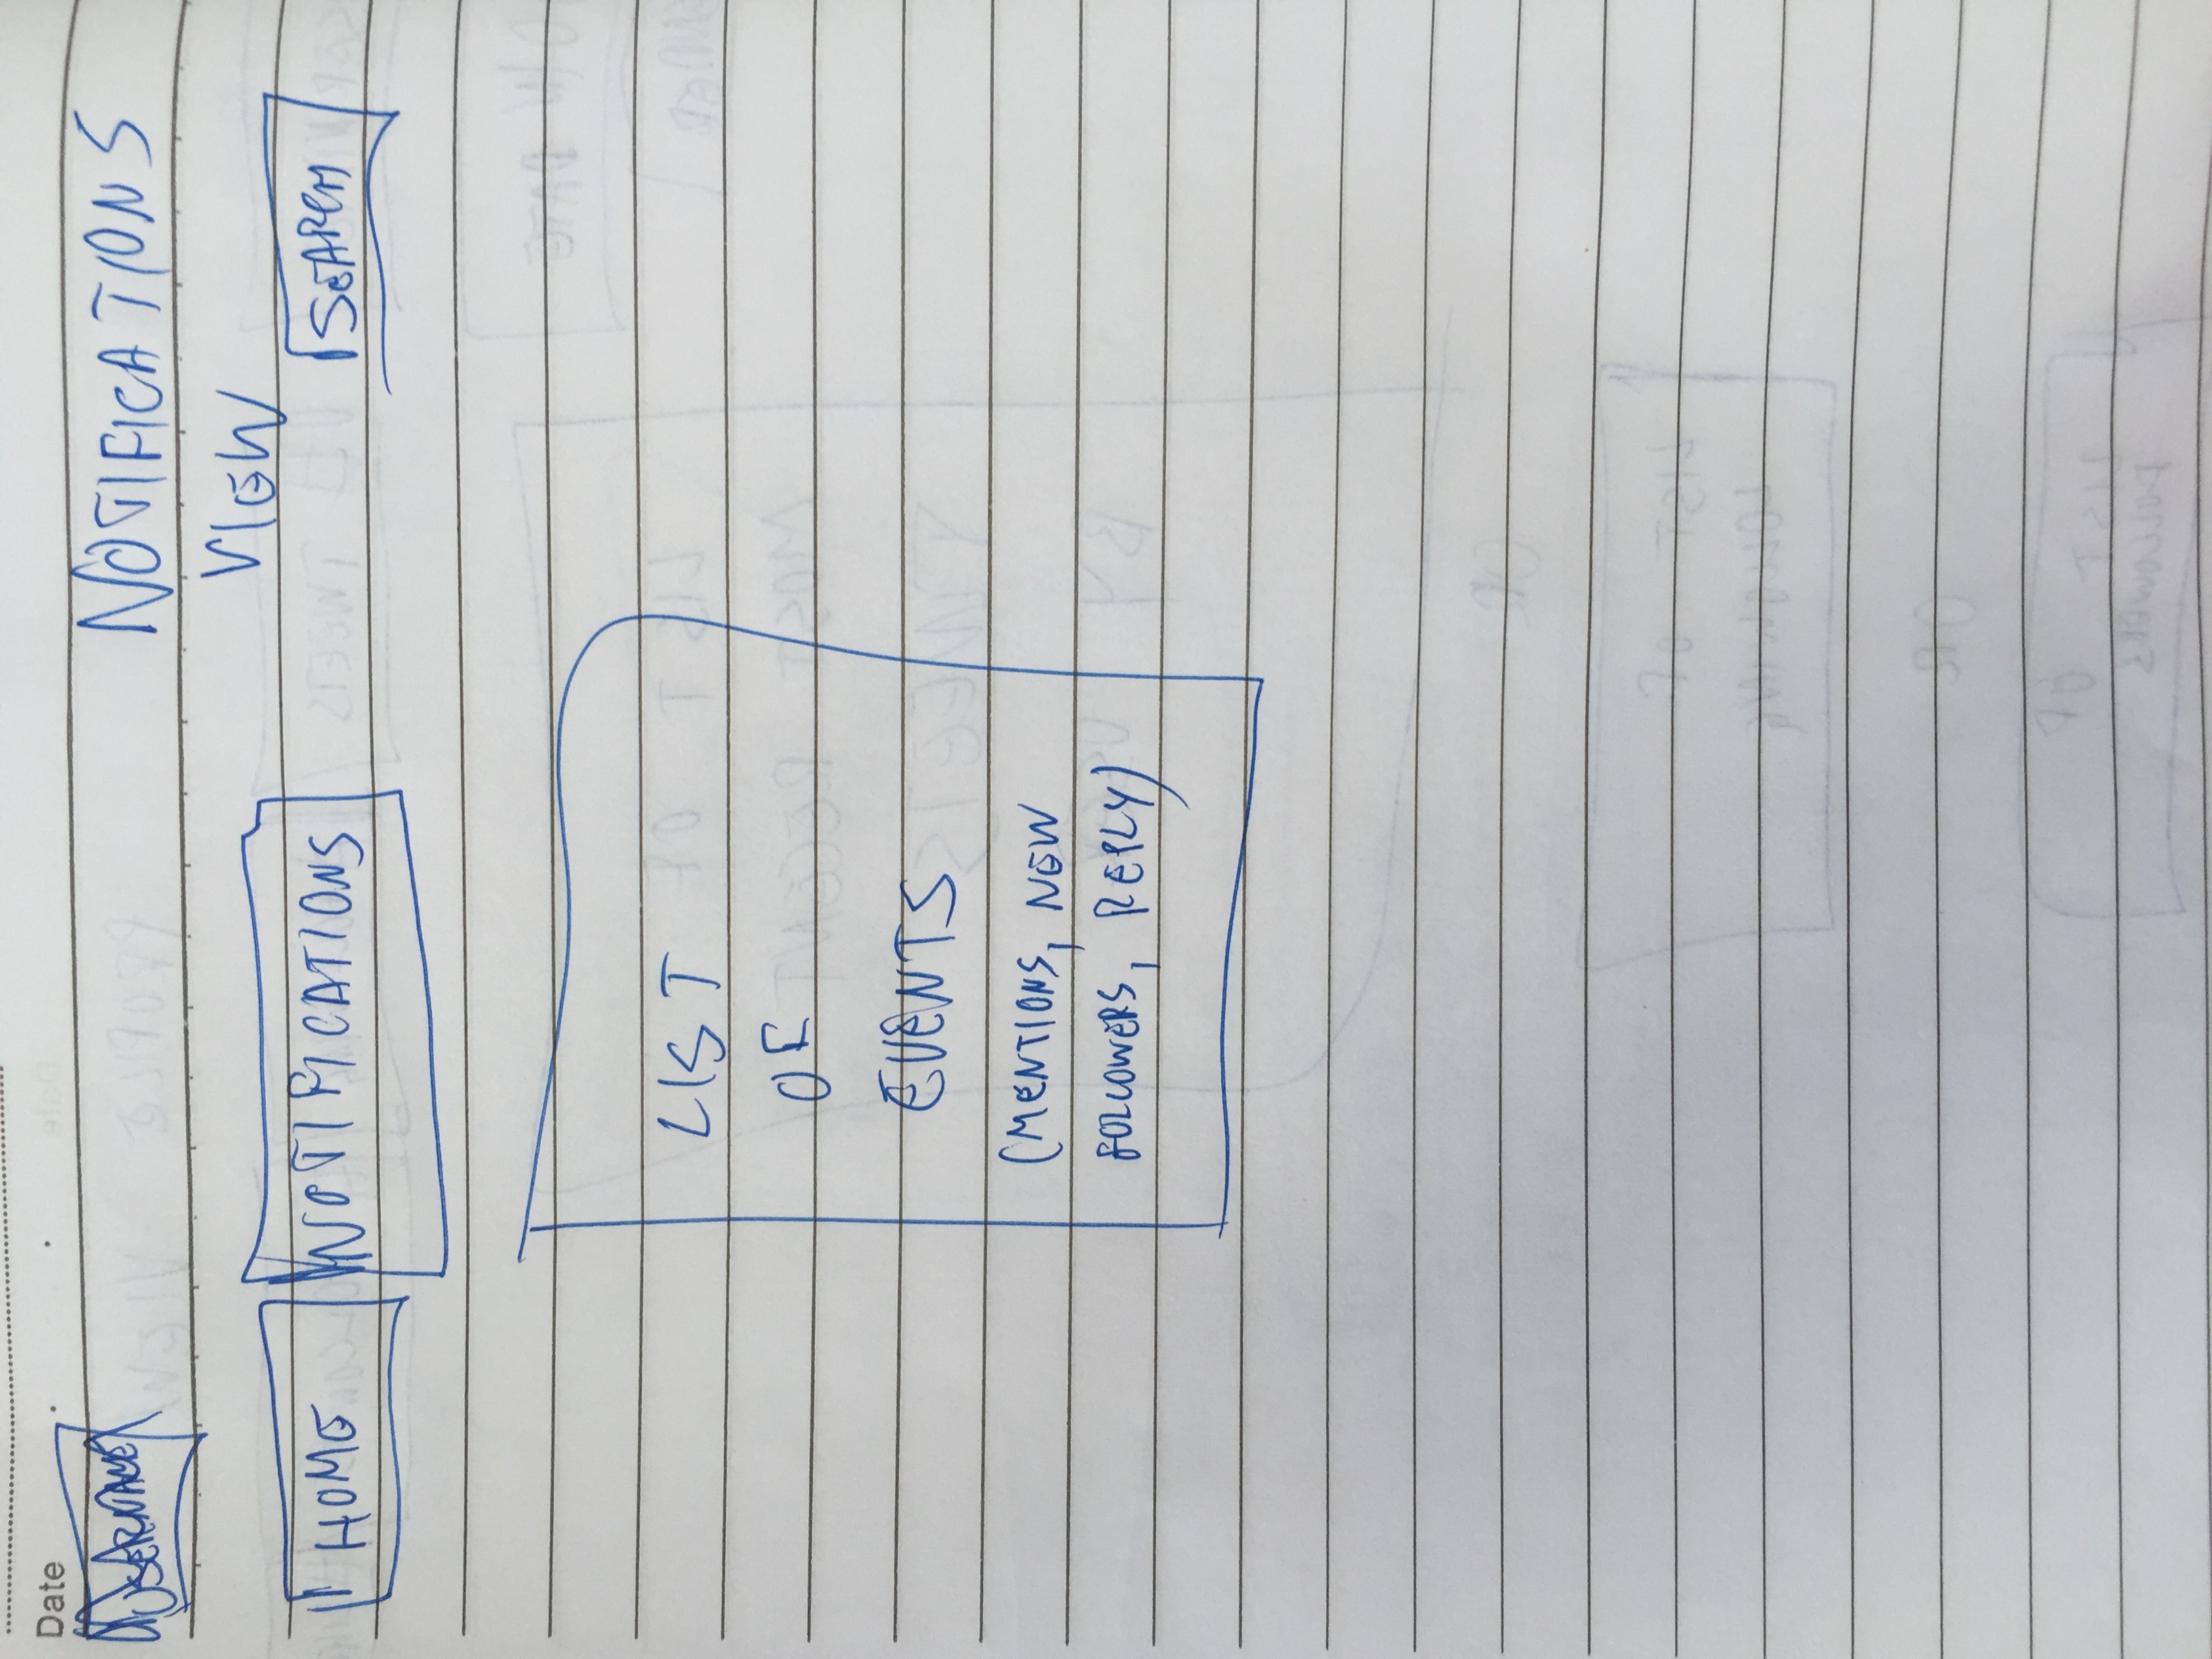 Date
USERNAME
NOTIFICATIONS
VIEW
HOME NOTIFICATIONS SEARCH
LIST
OF
EVENTS
(MENTIONS, NEW
FOLLOWERS, REPLY)